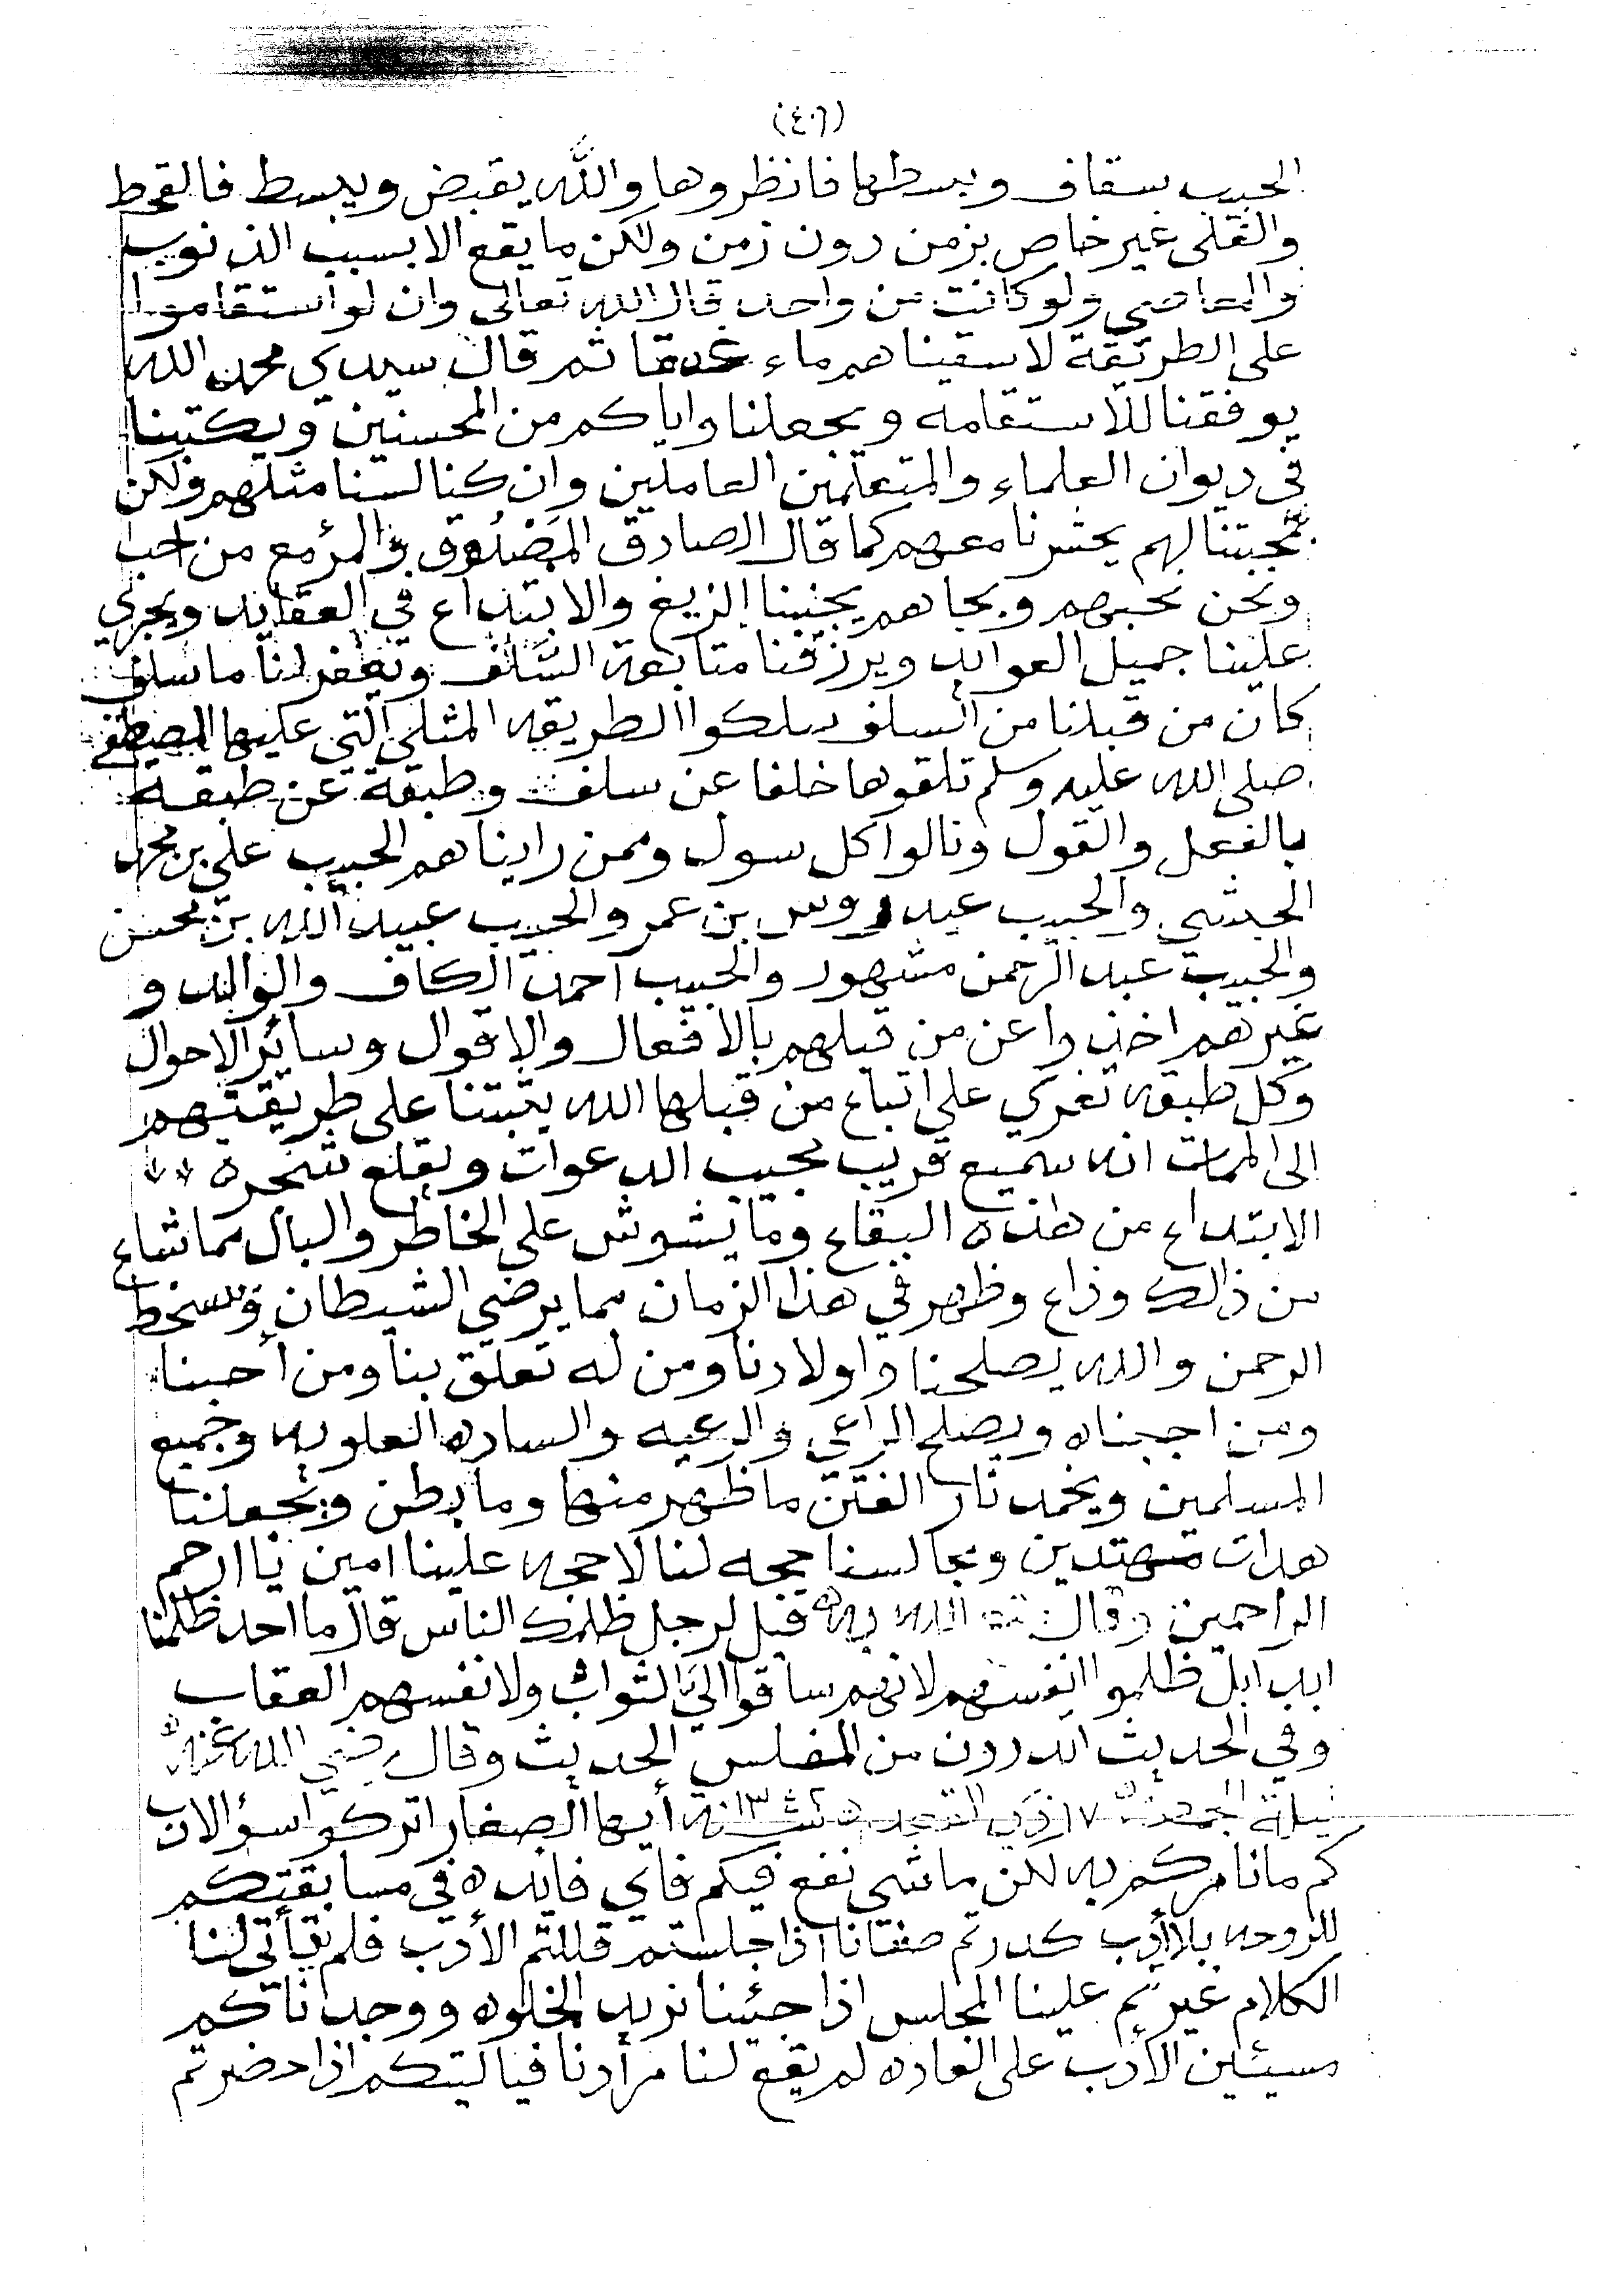 (٤٠٦)
الحبيب سقاف وبسطها فانظروها والله يقبض ويبسط فالقحط
والقلى غير خاص بزمن دون زمن ولكن ما يقع الا بسبب الذنوب
والمعاصي ولو كانت من واحد قال الله تعالى وان لو استقاموا
على الطريقة لاسقيناهم ماء غدقا ثم قال سيدي محمد الله
يوفقنا للاستقامه ويجعلنا واياكم من المحسنين ويكتبنا
في ديوان العلماء والمتعلمين العاملين وان كنا لسنا مثلهم ولكن
بمحبتنا لهم يحشرنا معهم كما قال الصادق المَصْدُوق والمرء مع من احب
ونحن نحبهم وبجاههم يجنبنا الزيغ والابتداع في العقايد ويجري
علينا جميل العوايد ويرزقنا متابعة السَّلف ويغفر لنا ما سلف
كان من قبلنا من السلف سلكوا الطريقه المثلى التي عليها المصطفى
صلى الله عليه وسلم تلقوها خلفا عن سلف وطبقة عن طبقة
بالفعل والقول ونالوا كل سول وممن رايناهم الحبيب علي بن محمد
الحبشي والحبيب عيدروس بن عمر والحبيب عبيد الله بن محسن
والحبيب عبد الرحمن مشهور والحبيب احمد الكاف والوالد و
غيرهم اخذوا عن من قبلهم بالافعال والاقوال وسائر الاحوال
وكل طبقه تغري على اتباع من قبلها الله يثبتنا على طريقتهم
الى الممات انه سميع قريب مجيب الدعوات ويقلع شجرة
الابتداع من هذه البقاع وما يشوش على الخاطر والبال مما شاع
من ذالك وذاع وظهر في هذا الزمان مما يرضي الشيطان ويسخط
الرحمن والله يصلحنا واولادنا ومن له تعلق بنا ومن أحبنا
ومن احببناه ويصلح الراعي والرعيه والساده العلويه وجميع
المسلمين ويخمد نار الفتن ما ظهر منها وما بطن ويجعلنا
هدات مهتدين ومجالسنا حجه لنا لا حجه علينا امين يا ارحم
الراحمين وقال الله به قيل لرجل ظلمك الناس قال ما احد ظلمنا
ابدا بل ظلموا انفسهم لانهم ساقوا اليَّ الثواب ولانفسهم العقاب
وفي الحديث اتدرون من المفلس الحديث وقال رضي الله عنه
ليلة الجمعة ١٧ ذي القعده سنة أيها الصغار اتركوا سؤالات
كم مانامركم به لكن ماشي نفع فيكم فاي فايده في مسابقتكم
للروحه بلا أدب كدرتم صفتانا اذا جلستم قللتم الأدب فلم يتأتى لنا
الكلام غيرتم علينا المجلس اذا جئنا نريد الخلوه ووجدناكم
مسيئين الأدب على العاده لم يقع لنا مرادنا فياليتكم اذا حضرتم